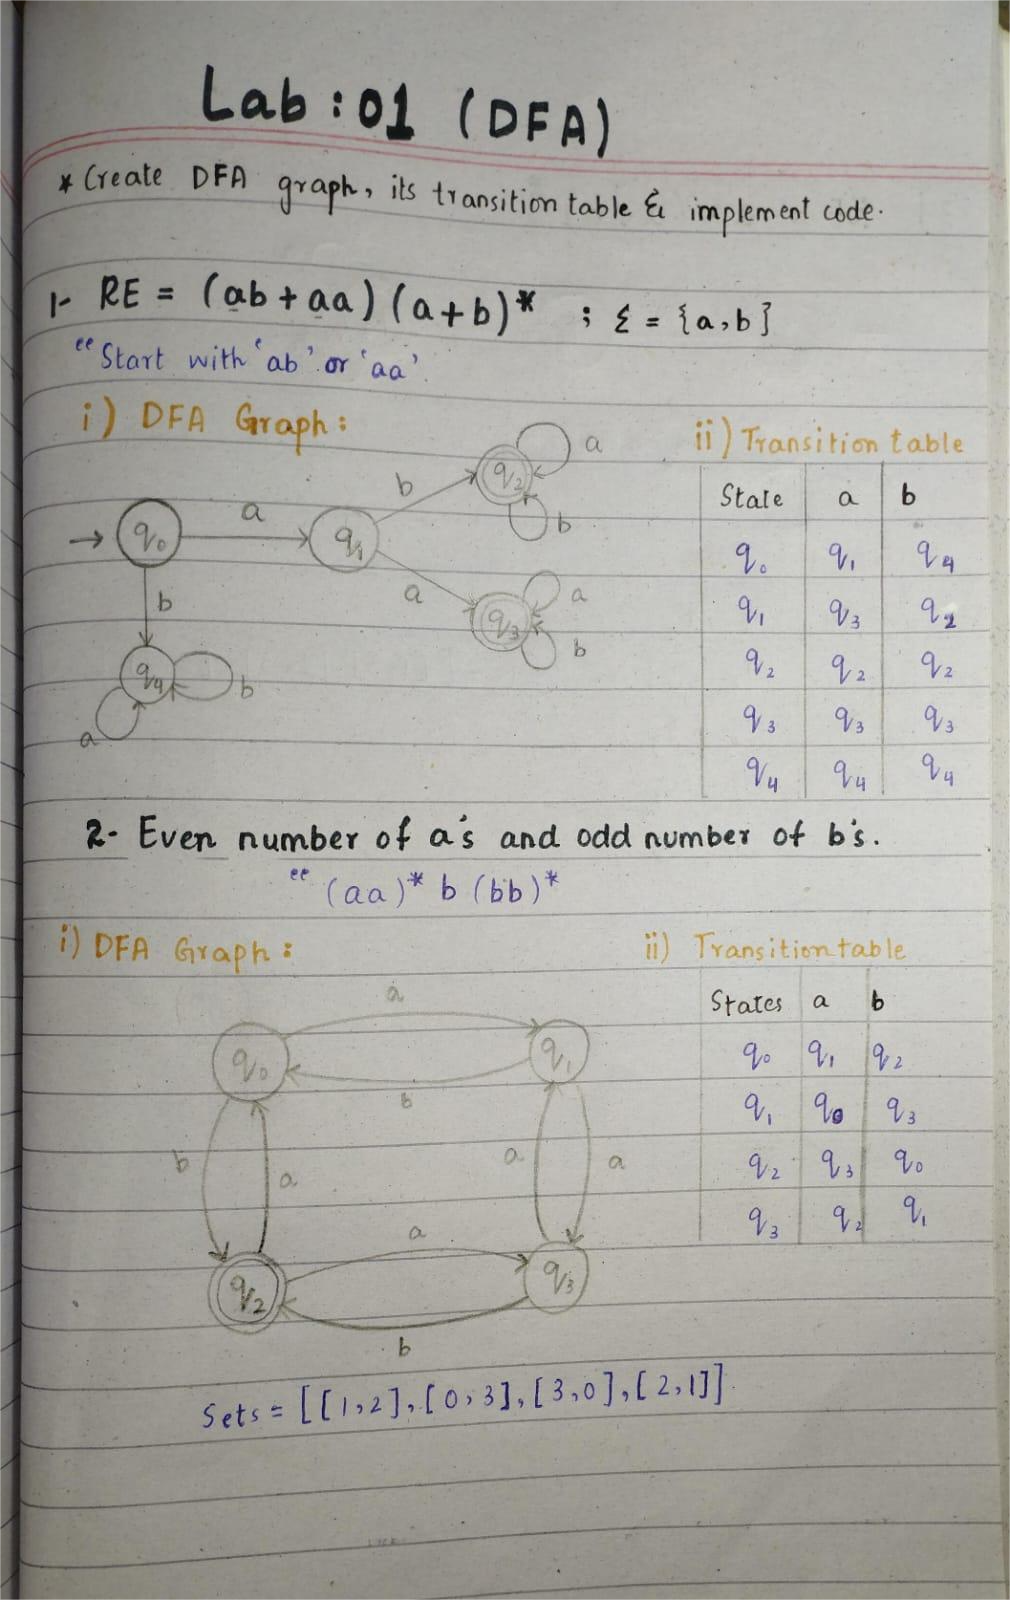 Lab : 01 (DFA)
* Create DFA graph, its transition table & implement code.
1- RE = (ab + aa) (a+b)* ; Σ = {a,b}
"Start with 'ab' or 'aa'.
i) DFA Graph:
q0 a q1 b q2 a b
a q3 a b
b q4 b a
ii) Transition table
State a b
q0 q1 q4
q1 q3 q2
q2 q2 q2
q3 q3 q3
q4 q4 q4
2- Even number of a's and odd number of b's.
" (aa)* b (bb)*
i) DFA Graph:
a
q0 q1
b
b a a a
a
q2 q3
b
ii) Transition table
States a b
q0 q1 q2
q1 q0 q3
q2 q3 q0
q3 q2 q1
Sets = [[1,2],[0,3],[3,0],[2,1]]